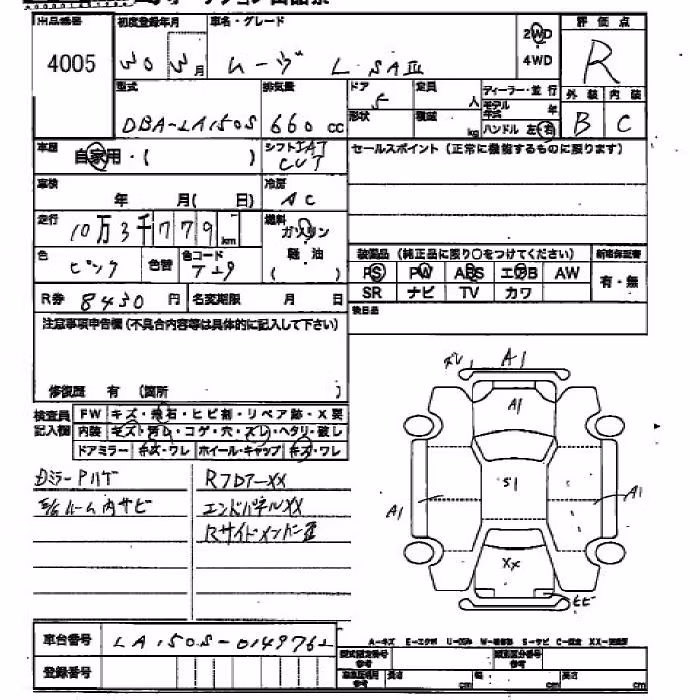 出品番号 初度登録年月 車名・グレード 評価点
4005 30 3月 ムーヴ L SAⅢ 2WD R
4WD
型式 排気量 ドア 定員 ディーラー・並行 外装 内装
5 人 モデル年式 年
DBA-LA150S 660cc 形状 積載 kg ハンドル 左・右 B C
車歴 自家用・( ) シフト IAT セールスポイント(正常に機能するものに限ります)
CVT
車検 年 月( 日) 冷房 AC
走行 10万3千779km 燃料 ガソリン
軽油
( )
色 ピンク 色替 色コード T29 装備品(純正品に限り○をつけてください) 新車保証書
PS PW ABS エアB AW 有・無
R券 8430円 名変期限 月 日 SR ナビ TV カワ
注意事項申告欄(不具合内容等は具体的に記入して下さい) 後日品
修復歴 有 (箇所 )
検査員記入欄 FW キズ・飛石・ヒビ割・リペア跡・X要
内装 キズ・汚れ・コゲ・穴・スレ・ヘタリ・破し
ドアミラー キズ・ワレ ホイール・キャップ キズ・ワレ
ズレ A1
A1
S1
A1 A1
XX
ヒビ
DミラーPハゲ RフロアーXX
E/Gルーム内サビ エンドパネルXX
Rサイドメンバー歪
車台番号 LA150S-0149762
A-キズ E-エクボ U-凹み W-補修跡 S-サビ C-腐食 XX-交換済
登録番号 型式指定番号 類別区分番号
参考 参考
長さ cm 幅 cm 高さ cm